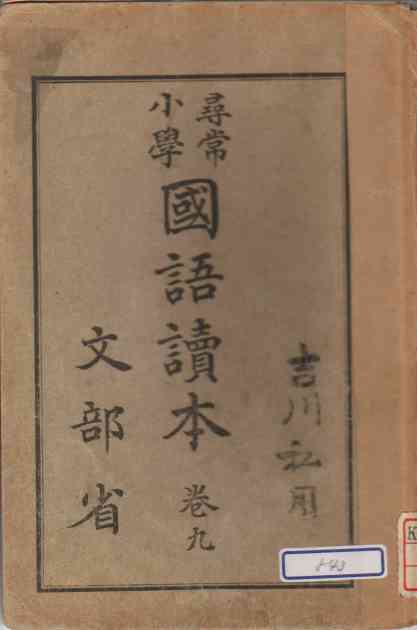 吉川私用
尋常
小學
國語讀本 卷九
文部省
K